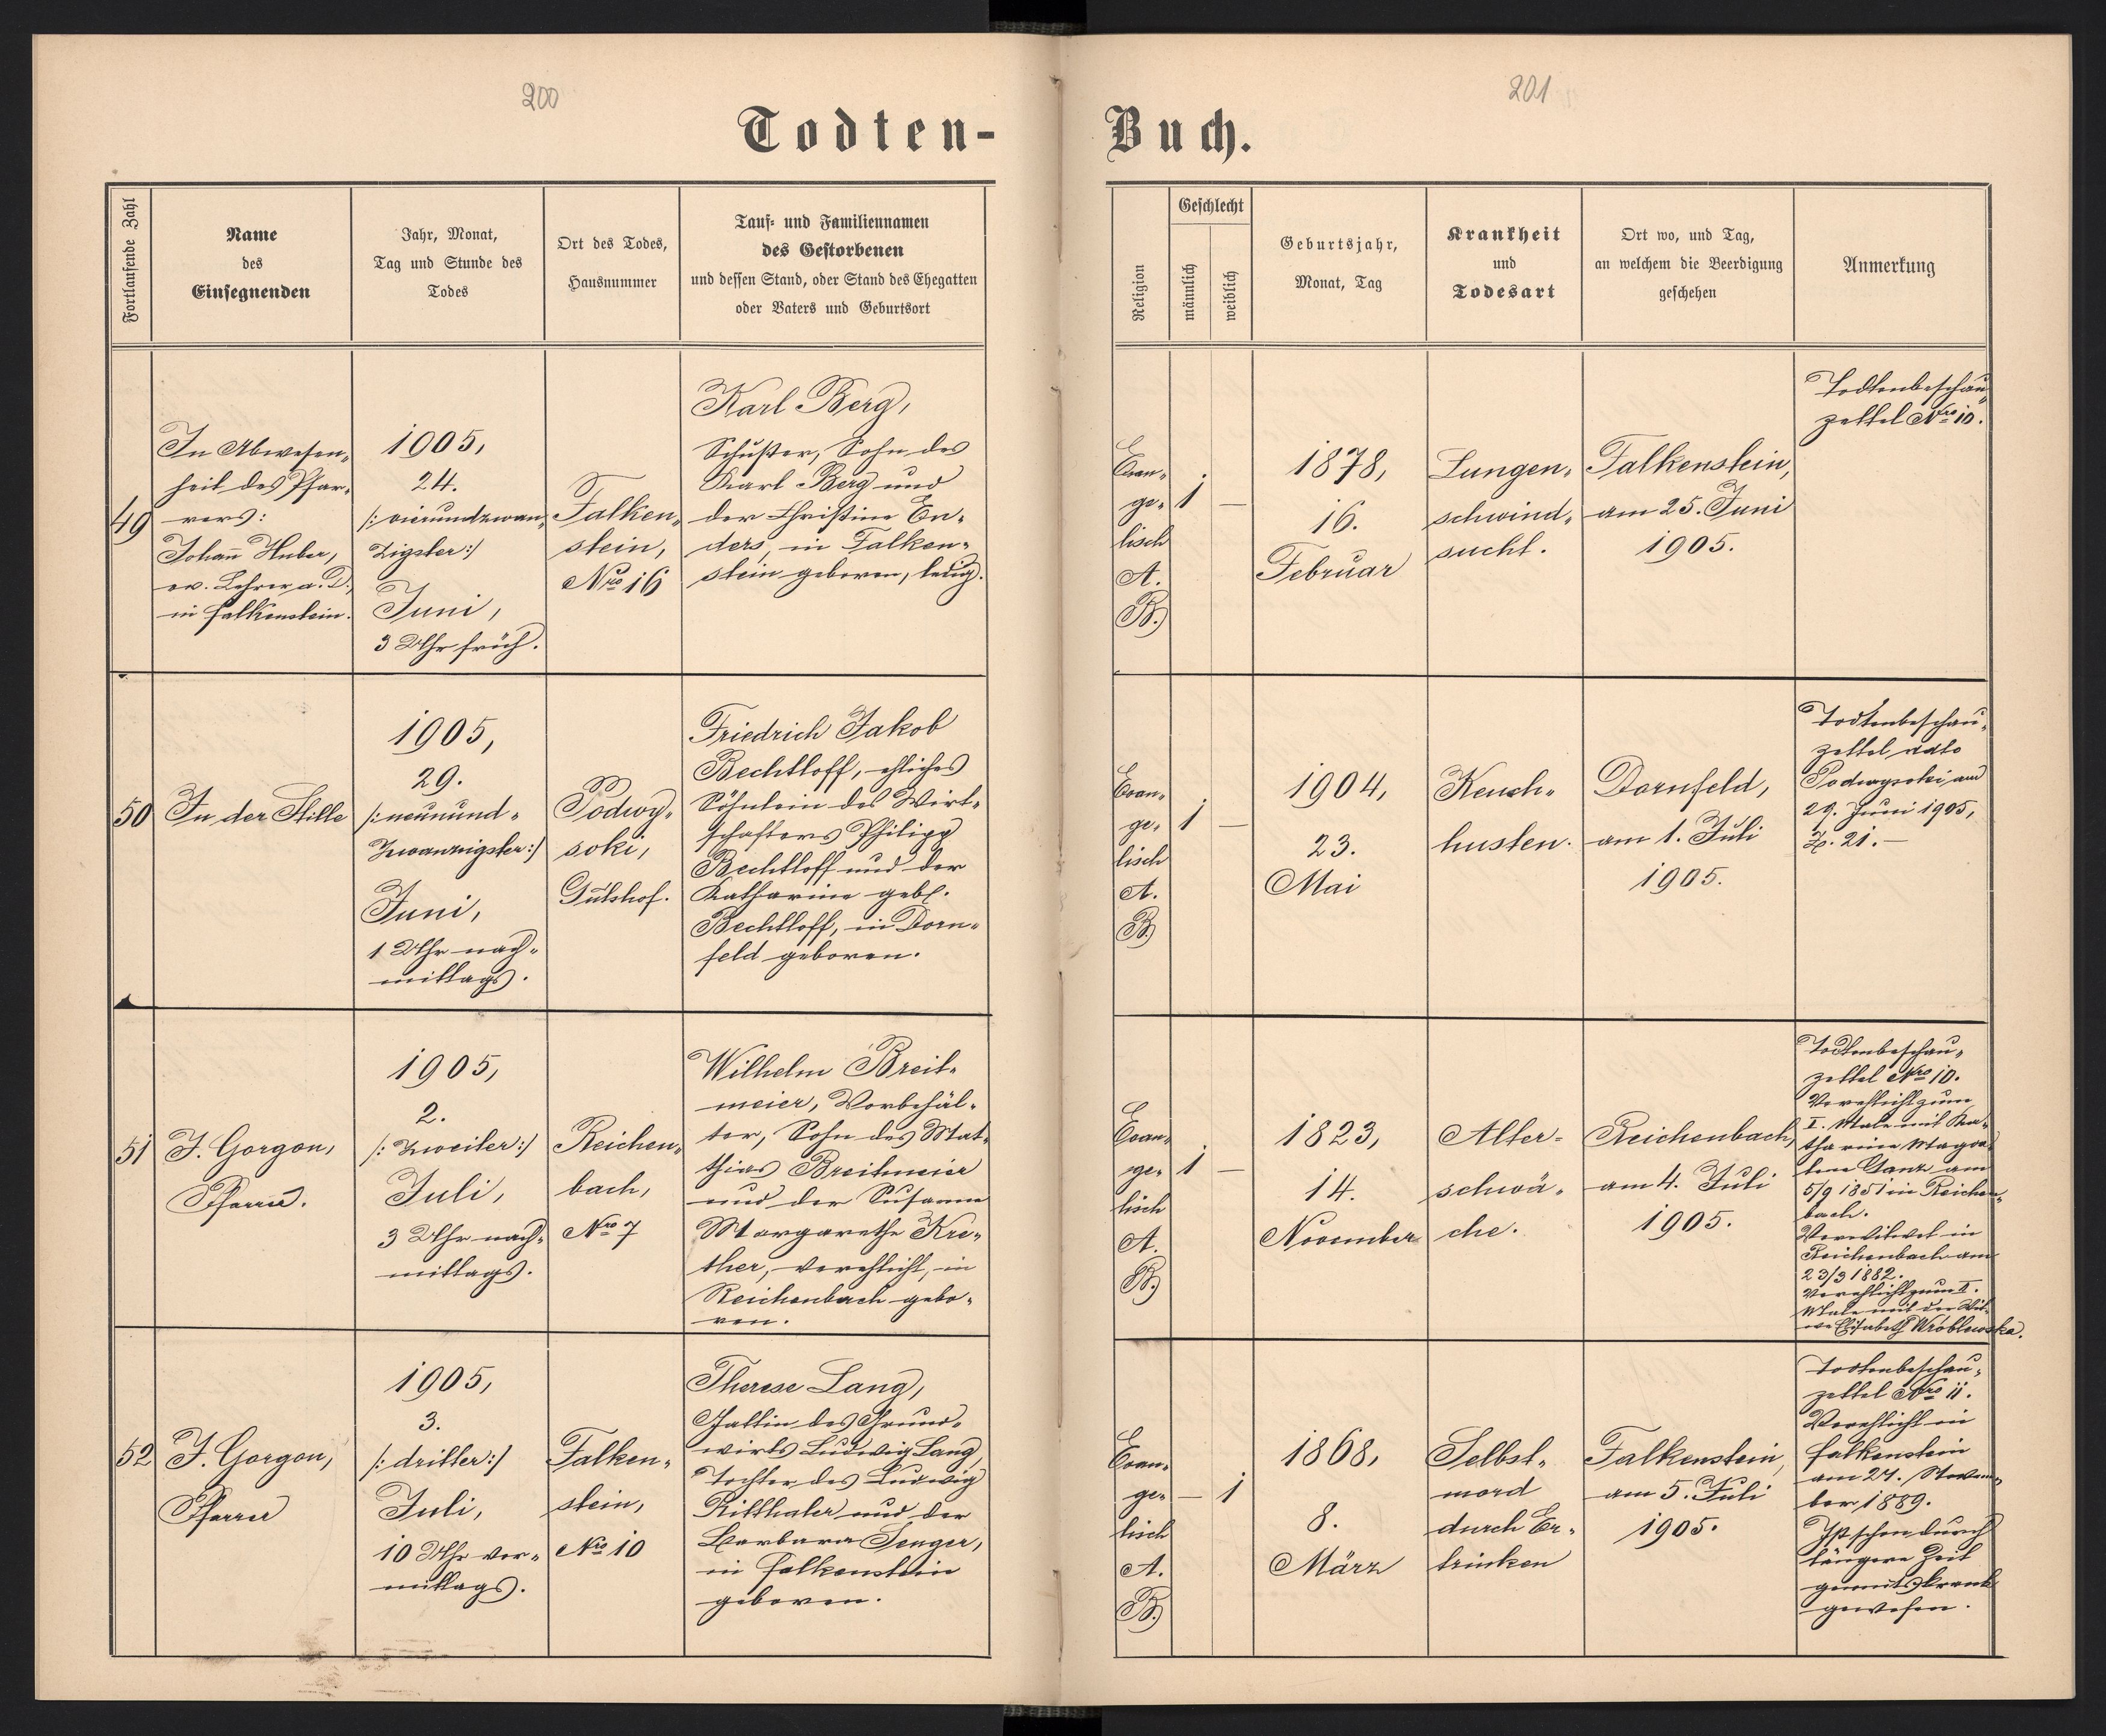 200
201
Todten-
Buch.
Fortlaufende Zahl
Name
des
Einsegnenden
Jahr, Monat,
Tag und Stunde des
Todes
Ort des Todes,
Hausnummer
Tauf- und Familiennamen
des Gestorbenen
und dessen Stand, oder Stand des Ehegatten
oder Vaters und Geburtsort
Religion
Geschlecht
männlich
weiblich
Geburtsjahr,
Monat, Tag
Krankheit
und
Todesart
Ort wo, und Tag,
an welchem die Beerdigung
geschehen
Anmerkung
49
In Abwesen-
heit des Pfar-
rers:
Johañ Huber,
ev. Lehrer a. D.,
in Falkenstein.
1905,
24.
/: vierundzwan-
zigster :/
Juni,
3 Uhr früh.
Falken-
stein,
Nro 16
Karl Berg,
Schuster, Sohn des
Karl Berg und
der Christine En-
ders, in Falken-
stein geboren, ledig.
Evan-
ge-
lisch
A.
B.
1
—
1878,
16.
Februar
Lungen-
schwind-
sucht.
Falkenstein,
am 25. Juni
1905.
Todtenbeschau-
zettel Nro 10.
50
In der Stille
1905,
29.
/: neunund-
zwanzigster :/
Juni,
1 Uhr nach-
mittags.
Podwy-
soki,
Gutshof.
Friedrich Jakob
Bechtloff, ehliches
Söhnlein des Wirt-
schafters Philipp
Bechtloff und der
Katharine geb.
Bechtloff, in Dorn-
feld geboren.
Evan-
ge-
lisch
A.
B.
1
—
1904,
23.
Mai
Keuch-
husten.
Dornfeld,
am 1. Juli
1905.
Todtenbeschau-
zettel ddto
Podwysoki am
29. Juni 1905,
Z. 21.—
51
J. Gorgon,
Pfarrer.
1905,
2.
/: zweiter :/
Juli,
3 Uhr nach-
mittags.
Reichen-
bach,
Nro 7
Wilhelm Breit-
meier, Vorbehäl-
ter, Sohn des Mat-
thias Breitmeier
und der Susanne
Margarethe Kre-
ther, verehlicht, in
Reichenbach gebo-
ren.
Evan-
ge-
lisch
A.
B.
1
—
1823,
14.
November
Alter-
schwä-
che.
Reichenbach,
am 4. Juli
1905.
Todtenbeschau-
zettel Nro 10.
Verehlicht zum
I. Male mit Ka-
tharine Magda-
lene Ganz am
5/9 1851 in Reichen-
bach.
Verwitwet in
Reichenbach am
23/3 1882.
Verehlicht zum II.
Male mit der Wit-
we Elisabeth Wróblewska.
52
J. Gorgon,
Pfarrer
1905,
3.
/: dritter :/
Juli,
10 Uhr vor-
mittags.
Falken-
stein,
Nro 10
Therese Lang,
Gattin des Grund-
wirts Ludwig Lang
Tochter des Ludwig
Ritthaler und der
Barbara Senger,
in Falkenstein
geboren.
Evan-
ge-
lisch
A.
B.
—
1
1868,
8.
März
Selbst-
mord
durch Er-
trinken
Falkenstein,
am 5. Juli
1905.
Todtenbeschau-
zettel Nro 11.
Verehlicht in
Falkenstein
am 27. Novem-
ber 1889.
Ist schon durch
längere Zeit
gemütskrank
gewesen.